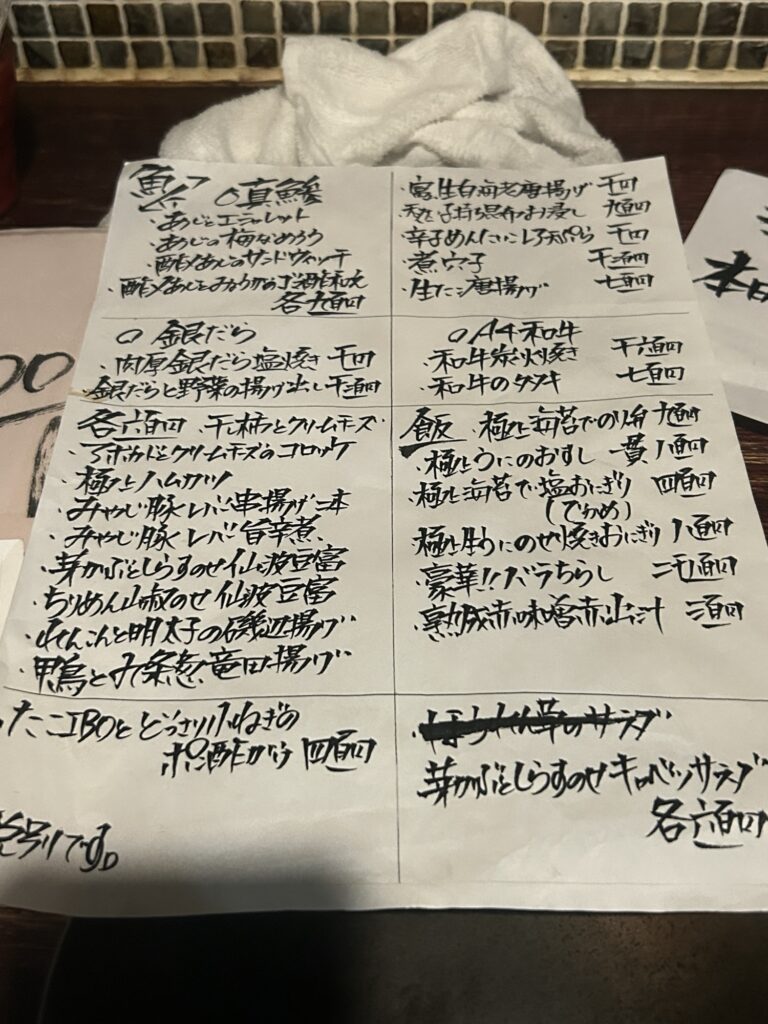 魚 ○真鰺
・あじとエシャレット
・あじの梅なめろう
・酢〆あじのサンドウィッチ
・酢〆あじとみょうがのごま酢和え
各九百円
・富山白海老唐揚げ 千円
・子持昆布のお浸し 九百円
・辛子めんたいこ天ぷら 千円
・煮穴子 千二百円
・生たこ唐揚げ 七百円
○銀だら
・肉厚銀だら塩焼き 千円
・銀だらと野菜の揚げ出し 千二百円
○A4和牛
・和牛炭火焼き 千六百円
・和牛のタタキ 七百円
各六百円 ・干し柿とクリームチーズ
・アボカドとクリームチーズのコロッケ
・極上ハムカツ
・みやじ豚レバー串揚げ二本
・みやじ豚レバー旨辛煮
・芽かぶとしらすのせ仙波豆富
・ちりめん山椒のせ仙波豆富
・れんこんと明太子の磯辺揚げ
・鴨と九条葱竜田揚げ
飯 ・極上海苔でのり弁 九百円
・極上うにのおすし 一貫八百円
・極上海苔で塩おにぎり 四百円
(でかめ)
・極上生うにのせ焼きおにぎり 八百円
・豪華!!バラちらし
・熟成赤味噌赤出汁 三百円
たこIBOとどっさり小ねぎの
ポン酢がけ 四百円
・ほうれん草のサラダ
・芽かぶとしらすのせキャベツサラダ
各六百円
です。
本日